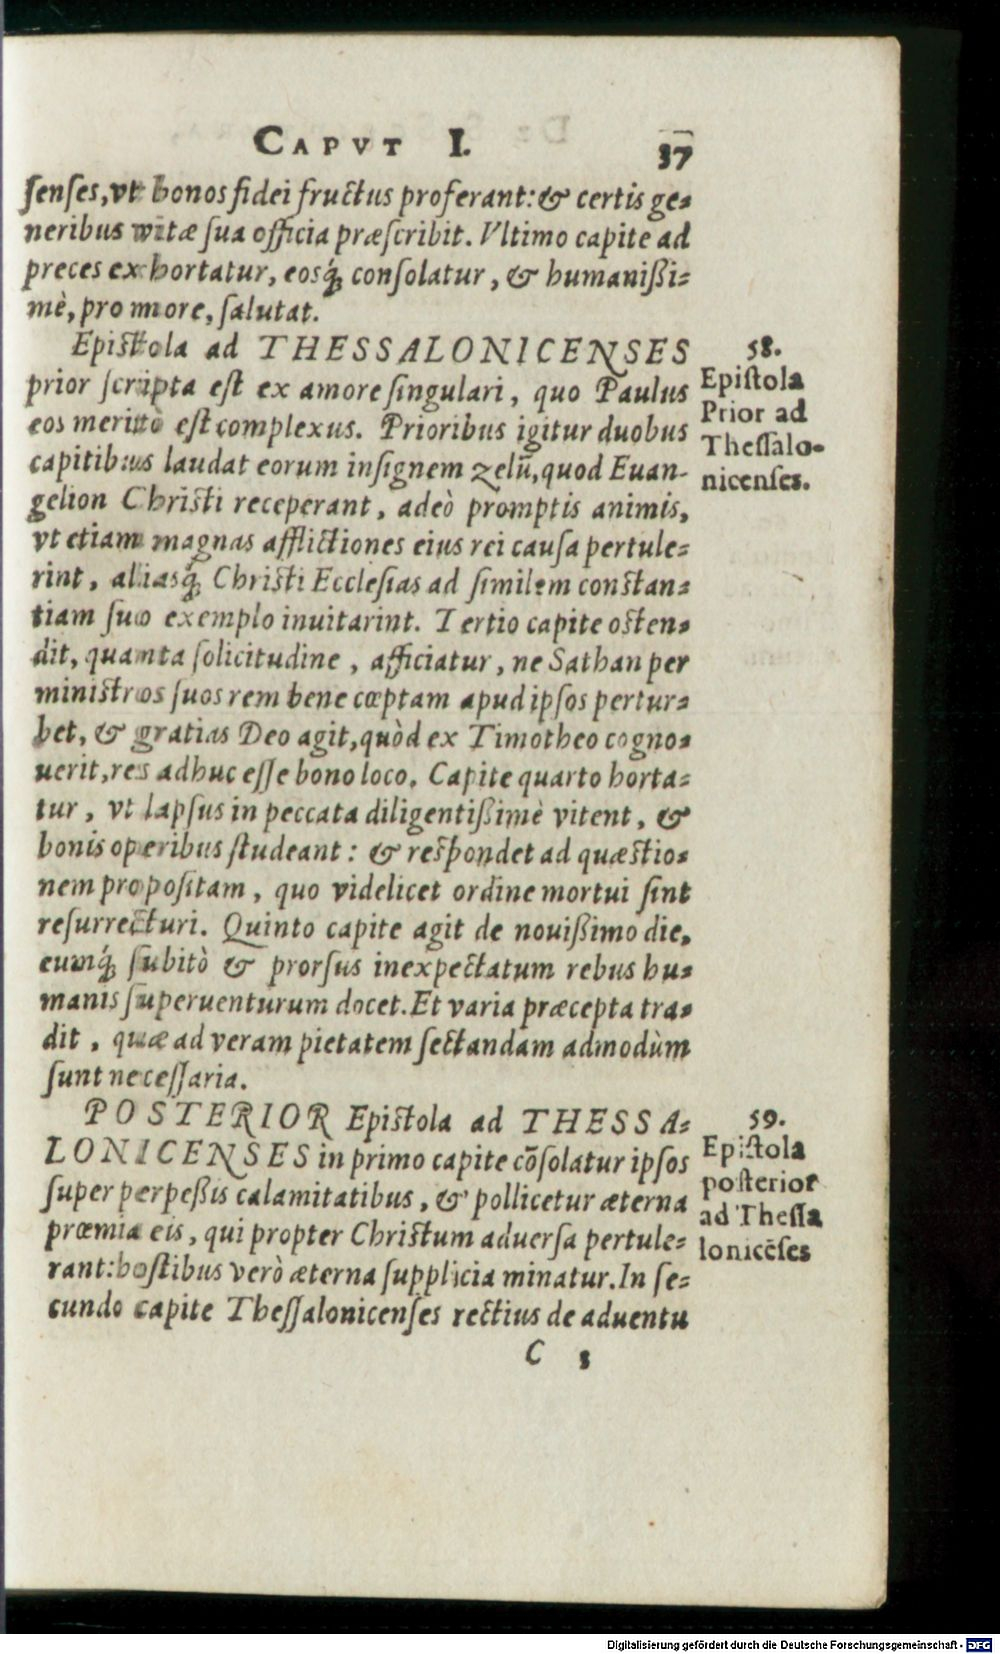 CAPVT I. 37
ſenſes, vt bonos fidei fructus proferant: & certis ge-
neribus vitæ ſua officia præſcribit. Vltimo capite ad
preces exhortatur, eosq́; conſolatur, & humanißi-
mè, pro more, ſalutat.
Epiſtola ad THESSALONICENSES
prior ſcripta eſt ex amore ſingulari, quo Paulus
eos meritò eſt complexus. Prioribus igitur duobus
capitibus laudat eorum inſignem zelū, quod Euan-
gelion Chriſti receperant, adeò promptis animis,
vt etiam magnas afflictiones eius rei cauſa pertule-
rint, aliasq́; Chriſti Eccleſias ad ſimilem conſtan-
tiam ſuo exemplo inuitarint. Tertio capite oſten-
dit, quanta ſolicitudine, afficiatur, ne Sathan per
miniſtros ſuos rem bene cœptam apud ipſos pertur-
bet, & gratias Deo agit, quòd ex Timotheo cogno-
uerit, res adhuc eſſe bono loco. Capite quarto horta-
tur, vt lapſus in peccata diligentißimè vitent, &
bonis operibus ſtudeant: & reſpondet ad quæſtio-
nem propoſitam, quo videlicet ordine mortui ſint
reſurrecturi. Quinto capite agit de nouißimo die,
eumq́; ſubitò & prorſus inexpectatum rebus hu-
manis ſuperuenturum docet. Et varia præcepta tra-
dit, quæ ad veram pietatem ſectandam admodùm
ſunt neceſſaria.
POSTERIOR Epiſtola ad THESSA-
LONICENSES in primo capite cōſolatur ipſos
ſuper perpeßis calamitatibus, & pollicetur æterna
præmia eis, qui propter Chriſtum aduerſa pertule-
rant: hoſtibus verò æterna ſupplicia minatur. In ſe-
cundo capite Theſſalonicenſes rectius de aduentu
C 3
58.
Epiſtola
Prior ad
Theſſalo-
nicenſes.
59.
Epiſtola
poſterior
ad Theſſa
lonicēſes
Digitalisierung gefördert durch die Deutsche Forschungsgemeinschaft - DFG